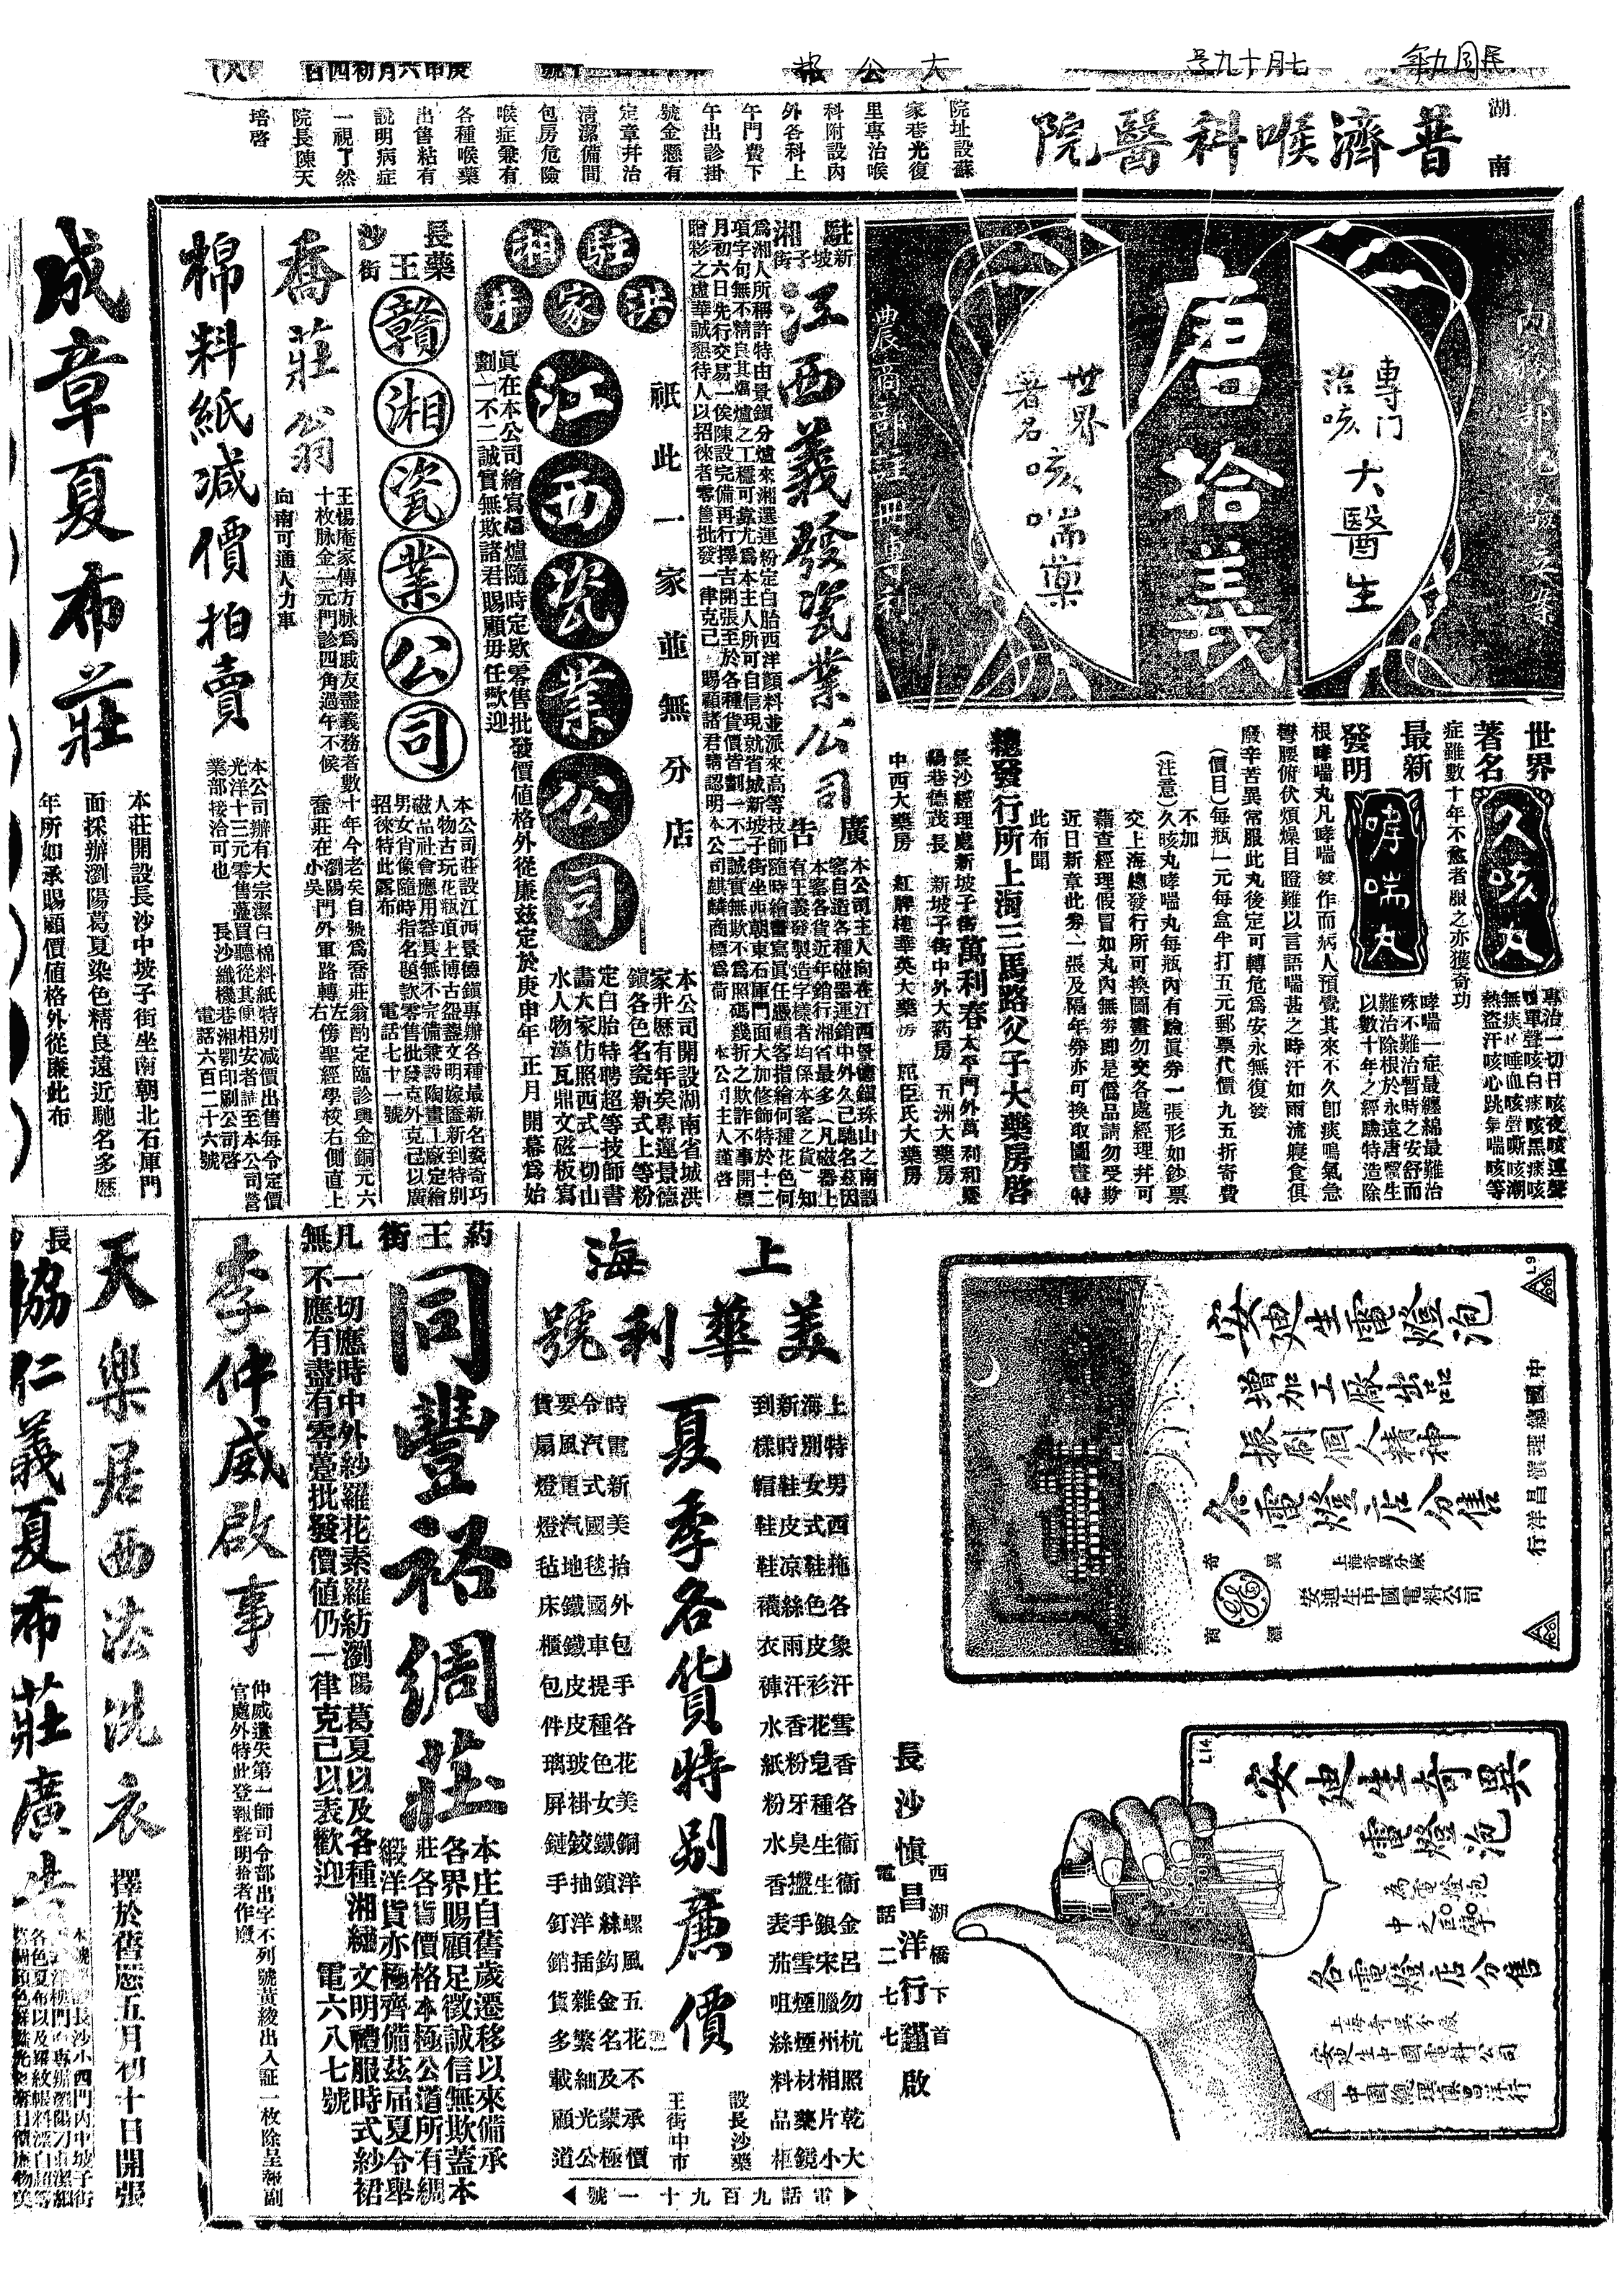 民國九年
七月十九号
大公報
庚申六月初四日
(八)
湖南
普濟喉科醫院
院址設蘇
家巷光復
里專治喉
科附設內
外各科上
午門費下
午出診掛
號金懸有
定章幷治
清潔備間
包房危險
喉症兼有
各種喉藥
出售粘有
說明病症
一視了然
院長陳天
培啓
專門
治咳
大醫生
唐拾義
世界
著名
咳喘藥
農商部註冊專利
世界
著名
久咳丸
最新
發明
哮喘丸
症難數十年不愈者服之亦獲奇功
哮喘一症最纏綿最難治
殊不難治暫時之安舒而
難治除根於永遠唐醫生
以數十年之經驗特造除
根哮喘丸凡哮喘發作而病人預覺其來不久卽痰鳴氣急
彎腰俯伏煩燥目瞪難以言語喘甚之時汗如雨流寢食俱
廢辛苦異常服此丸後定可轉危爲安永無復發
(價目)每瓶一元每盒半打五元郵票代價九五折寄費
不加
(注意)久咳丸哮喘丸每瓶內有驗眞券一張形如鈔票
交上海總發行所可換圖畫勿交各處經理幷可
藉查經理假冒如丸內無券卽是僞品請勿受欺
近日新章此券一張及隔年券亦可換取圖畫特
此布聞
總發行所上海三馬路父子大藥房啓
長沙經理處新坡子街萬利春太平門外萬利和
福巷德茂長 新坡子街中外大药房 五洲大藥房
中西大藥房 紅牌樓華英大藥房 屈臣氏大藥房
駐湘
新坡子街
江西義發瓷業公司
廣告
本公司主人向在江西景德鎭珠山之南設
窰自造各種磁器運銷中外久已馳名茲因
本窰各貨近年銷行湘省最多(凡磁器上
有王義發製造字樣者均係本窰之貨)知
爲湘人所稱許特由景鎭分爐來湘選運粉定白胎西洋顏料並派來高等技師隨時繪畫寫眞任憑顧客指繪何種花色何
項字句無不精良其爐之工穩可靠尤爲本主人所可自信現就省城新坡子街坐西朝東石庫門面大加修飾特於十二
月初六日先行交易一俟陳設完備再行擇吉開張至於各種貨價皆劃一不二誠實無欺不爲照碼幾折之欺詐不事開標
贈彩之虛華誠懇待人以招徠者零售批發一律克己 賜顧諸君請認明本公司麒麟商標爲荷 本公司主人謹啓
祇此一家並無分店
駐湘
洪家井
江西瓷業公司
本公司開設湖南省城洪
家井歷有年矣專運景德
鎭各色名瓷新式上等粉
定白胎特聘超等技師書
畵大家仿照西式一切山
水人物漢瓦鼎文磁板寫
眞在本公司繪寫爐隨時定欵零售批發價値格外從廉茲定於庚申年正月開幕爲始
劃一不二誠實無欺諸君賜顧毋任歡迎
長沙
藥王街
贛湘瓷業公司
本公司莊設江西景德鎭專辦各種最新名瓷奇巧
人物古玩花瓶頂上博古盌盞文明嫁匳新到特別
磁品社會應用器具無不完備兼設陶畫工廠定繪
男女肖像隨時指名題欵零售批發克外克己以廣
招徠特此露布 電話七十一號
喬莊翁
王惕庵家傳方脉爲戚友盡義務者數十年今老矣自號爲喬莊翁酌定臨診輿金銅元六
十枚脉金一元門診四角過午不候 喬莊在瀏陽小吳門外軍路轉左右傍聖經學校右側直上
向南可通人力車
棉料紙減價拍賣
本公司辦有大宗潔白棉料紙特別减價出售每令定價
光洋十三元零售躉買聽從其便相安者請至本公司營
業部接洽可也 長沙織機巷湘鄂印刷公司啓
電話六百二十六號
成章夏布莊
本莊開設長沙中坡子街坐南朝北石庫門
面採辦瀏陽葛夏染色精良遠近馳名多歷
年所如承賜顧價値格外從廉此布
中國總理慎昌洋行
安迪生電燈泡
增加工廠出品
振刷個人精神
各電燈店分售
上海奇異分廠
安迪生中國電料公司
奇異
商標
L9
L14
安迪生奇異
電燈泡
為電燈泡
中之巨擘
各電燈店分售
上海奇異分廠
安迪生中國電料公司
中國總理慎昌洋行
長沙慎昌洋行謹啟
西湖橋下首
電話二七七
上海
美華利號
夏季各貨特別廉價
上海新到
特別時樣
男女鞋帽
西式皮鞋
拖鞋凉鞋
各色絲襪
象皮雨衣
汗衫汗褲
雪花香水
香皂粉紙
各種牙粉
衛生臭水
衛生盬香
金銀手表
呂宋雪茄
勿臘煙咀
杭州煙絲
照相材料
乾片藥品
大小鏡框
時令要貨
電汽風扇
新式電燈
美國汽燈
抬毯地毡
外國鐵床
包車鐵櫃
手提皮包
各種皮件
花色玻璃
美女褂屏
銅鐵鉸鏈
洋鎖抽手
螺絲洋釘
風鈎插銷
五金雜貨
花名繁多
不及細載
承蒙光顧
價極公道
設長沙藥
王街中市
電話九百九十一號
葯王街
同豐裕綢莊
本庄自舊歲遷移以來備承
各界賜顧足徵誠信無欺蓋本
莊各貨價格本極公道所有綢
緞洋貨亦極齊備茲届夏令舉
凡一切應時中外紗羅花素羅紡瀏陽葛夏以及各種湘繡文明禮服時式紗裙
無不應有盡有零躉批發價値仍一律克己以表歡迎 電六八七號
李仲威啟事
仲威遺失第一師司令部出字不列號黃綾出入証一枚除呈報副
官處外特此登報聲明拾者作廢
天樂居西法洗衣
擇於舊歷五月初十日開張
長沙
協仁義夏布莊廣告